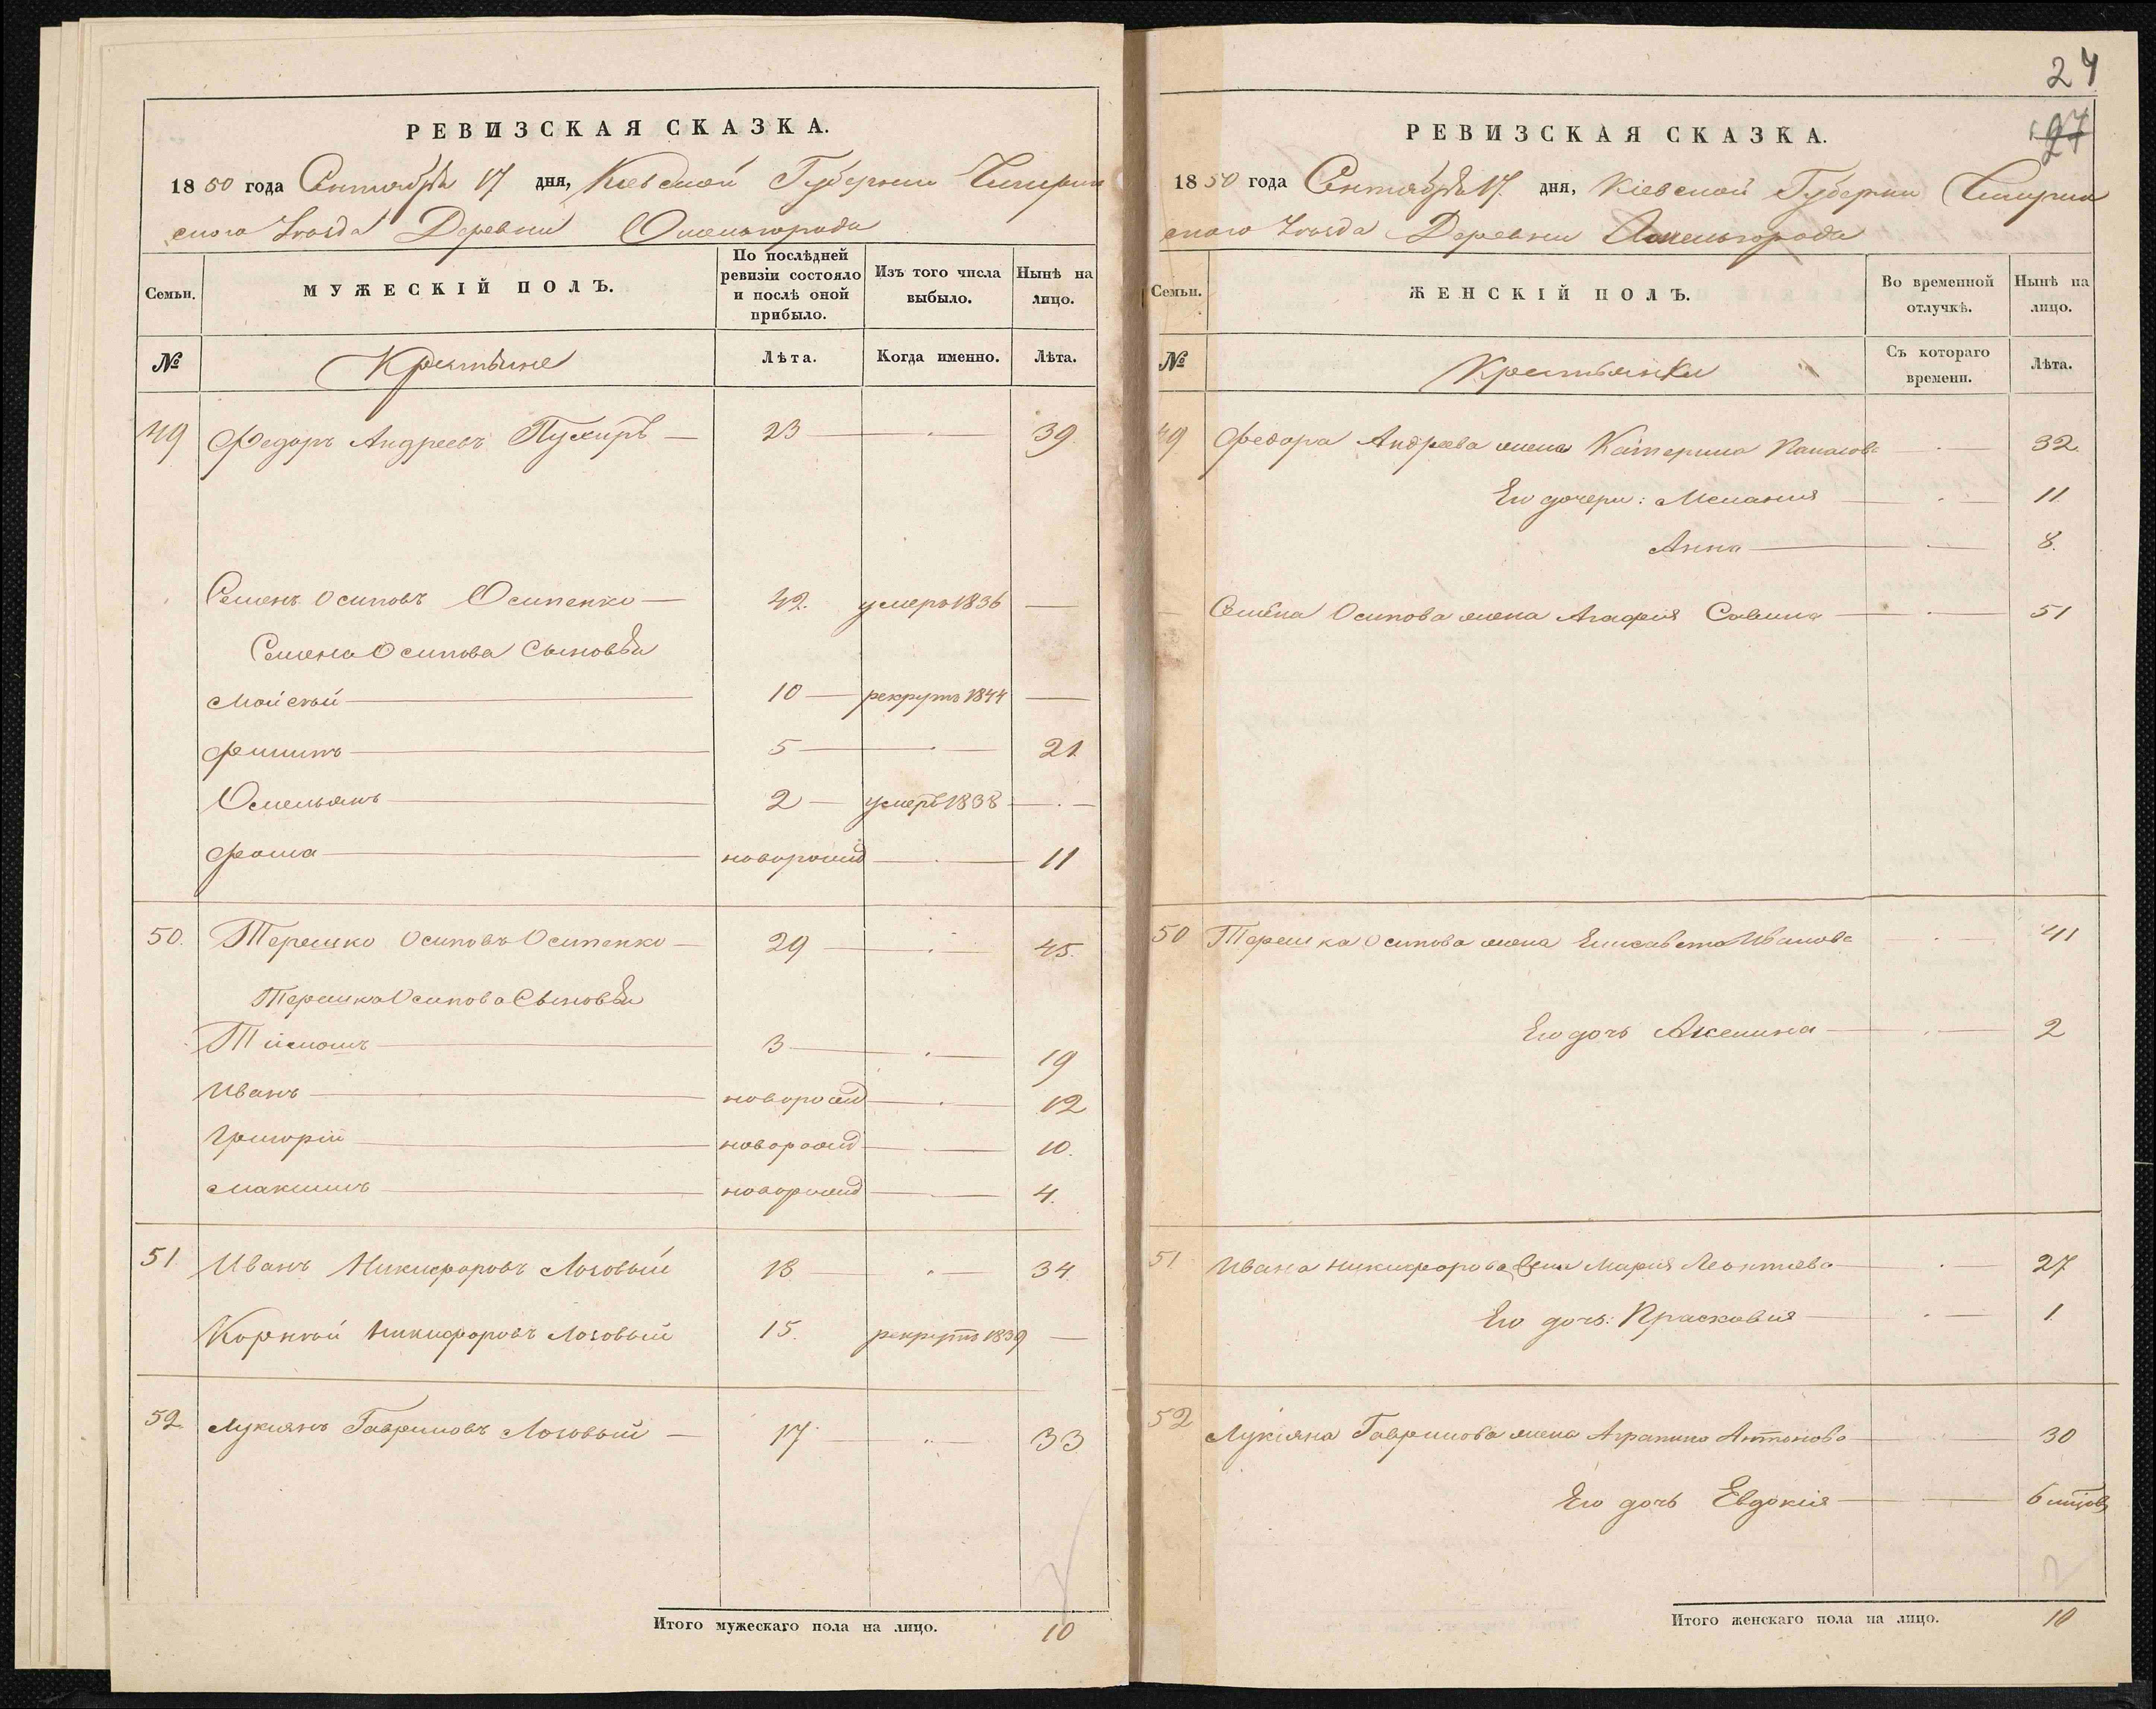 РЕВИЗСКАЯ СКАЗКА.
1850 года Сентября 17 дня, Кіевской Губерніи Чигирин
ского Уезда Деревни Омельгорода
Семьи.
МУЖЕСКІЙ ПОЛЪ.
По послѣдней ревизіи состояло и послѣ оной прибыло.
Изъ того числа выбыло.
Нынѣ на лицо.
№
Крестьяне
Лѣта.
Когда именно.
Лѣта.
49 Федоръ Андреевъ Пухиръ — 23 — 39
Семенъ Осиповъ Осипенко — 42. умеръ 1836 —
Семена Осипова Сыновья
Мойсей — 10 — рекрутъ 1844 —
Филипъ — 5 — 21
Омельянъ — 2 — умеръ 1838 —
Фома — новорожд — 11
50. Терешко Осиповъ Осипенко — 29 — 45.
Терешка Осипова Сыновья
3 — 19
Иванъ — новорожд — 12
Григорій — новорожд — 10.
Максимъ — новорожд — 4.
51 Иванъ Никифоровъ Лозовый 18 — 34
Корній Никифоровъ Лозовый 15. рекрутъ 1839 —
52. Лукіянъ Гавриловъ Лозовый — 17 — 33
Итого мужескаго пола на лицо. 10
24
27
РЕВИЗСКАЯ СКАЗКА.
1850 года Сентября 17. дня, Кіевской Губерніи Чигирин
ского Уезда Деревни Омельгорода
Семьи.
ЖЕНСКІЙ ПОЛЪ.
Во временной отлучкѣ.
Нынѣ на лицо.
№
Крестьянки
Съ котораго времени.
Лѣта.
49 Федора Андреева жена Катерина Панасова — 32.
Его дочери: Мелания — 11
Анна — 8.
Семена Осипова жена Агафия Савина — 51
50 Терешка Осипова жена Елисавета Иванова — 41
Его дочь Акелина — 2
51 Ивана Никифорова жена Мария Леонтиева — 27
Его дочь: Прасковия — 1
52 Лукіяна Гаврилова жена Агрипина Антонова — 30
Его дочь Евдокия — 6 мѣсяцовъ
Итого женскаго пола на лицо. 10